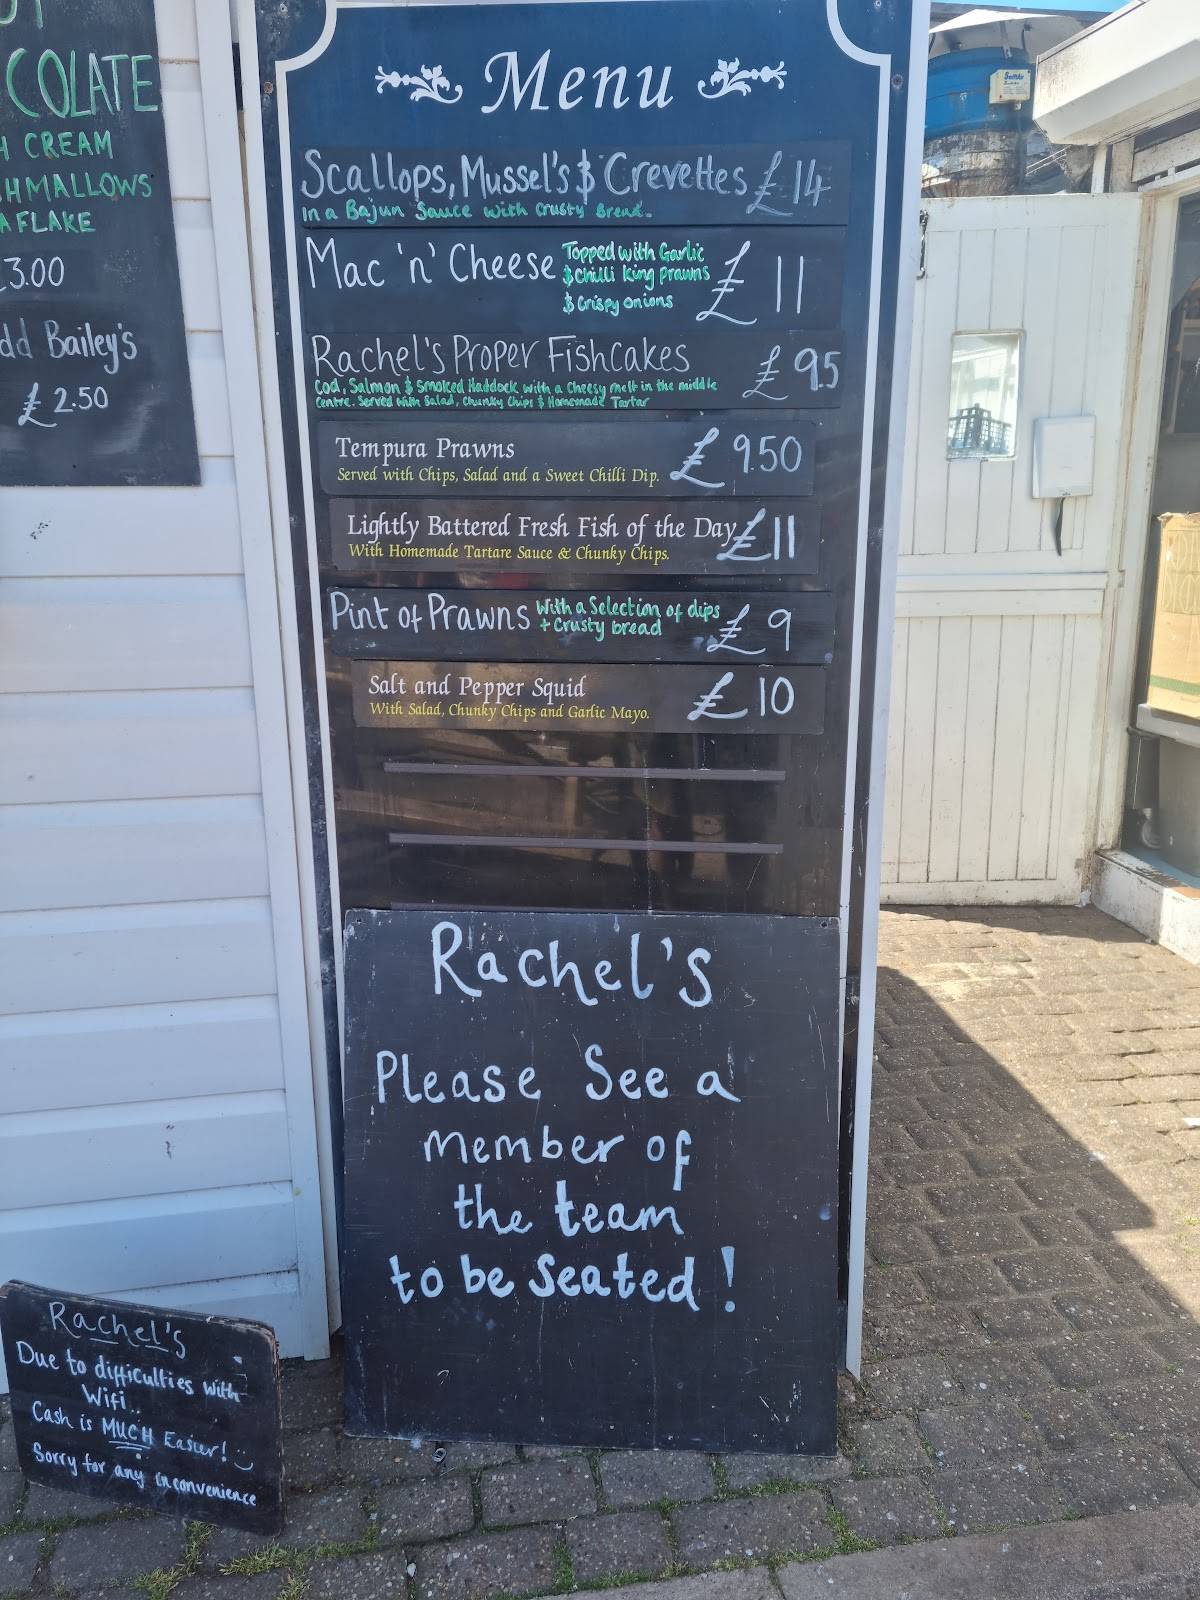 COLATE
CREAM
A FLAKE
3.00
Bailey's
£2.50
Menu
Scallops, Mussel's & Crevettes £14
In a Bajun Sauce with Crusty Bread.
Mac 'n' Cheese Topped with Garlic
& Chilli King Prawns
& Crispy onions
£11
Rachel's Proper Fishcakes £9.5
Cod, Salmon & Smoked Haddock with a Cheesy melt in the middle
Centre. Served with Salad, Chunky Chips & Homemade Tartar
Tempura Prawns £9.50
Served with Chips, Salad and a Sweet Chilli Dip.
Lightly Battered Fresh Fish of the Day £11
With Homemade Tartare Sauce & Chunky Chips.
Pint of Prawns With a Selection of dips
+ Crusty bread
£9
Salt and Pepper Squid £10
With Salad, Chunky Chips and Garlic Mayo.
Rachel's
Please See a
member of
the team
to be seated!
Rachel's
Due to difficulties with
Wifi..
Cash is MUCH Easier!
Sorry for any inconvenience